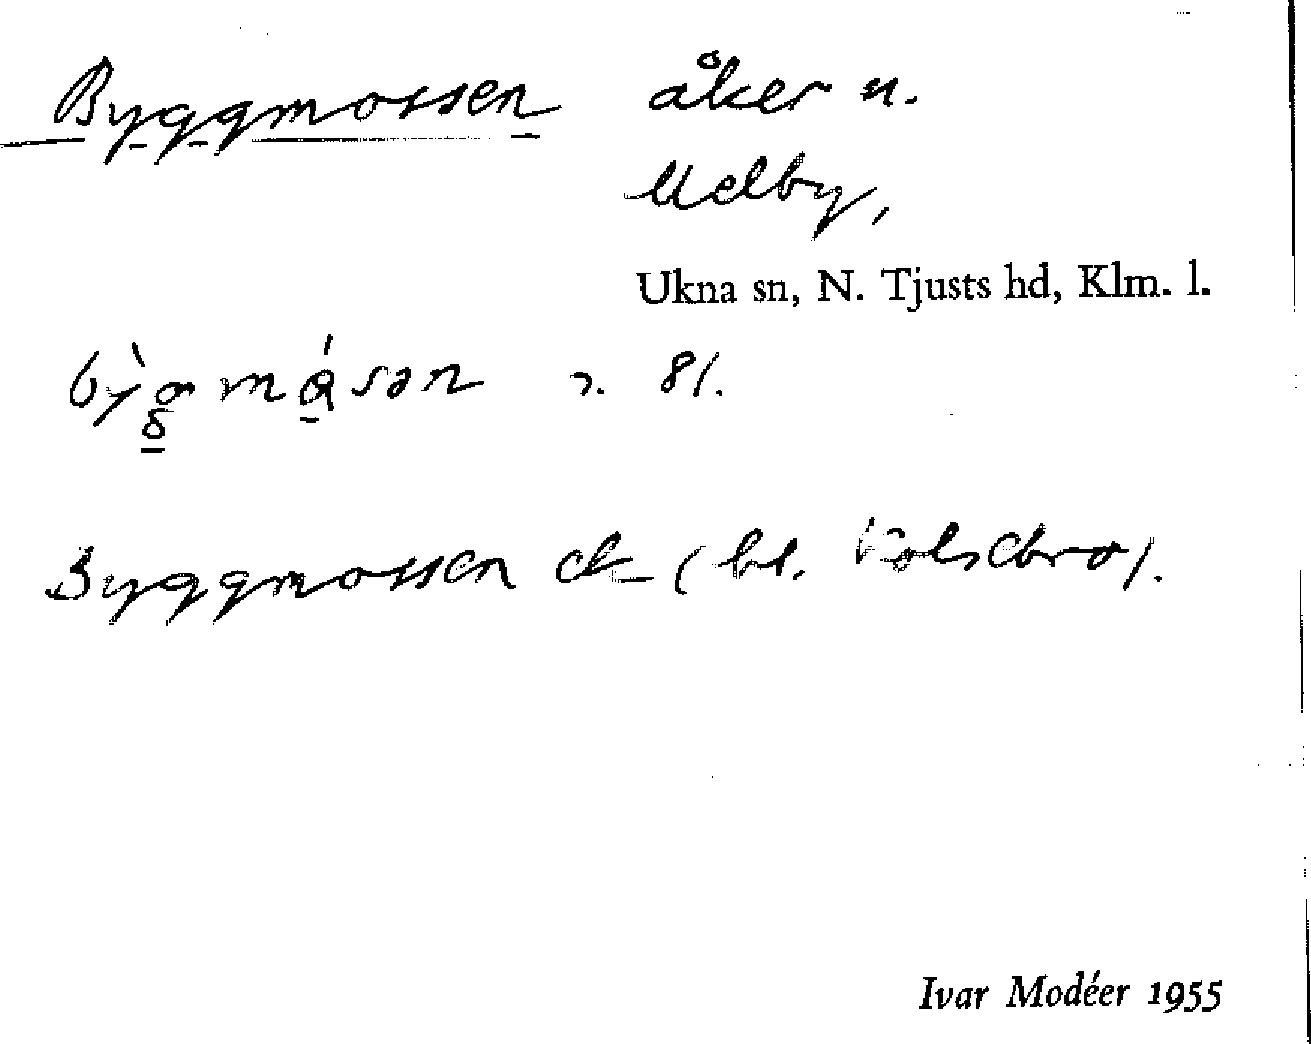 Byggmossen åker n.
Melby,
Ukna sn, N. Tjusts hd, Klm. l.
81.
Byggmossen ek (bl.
Ivar Modéer 1955